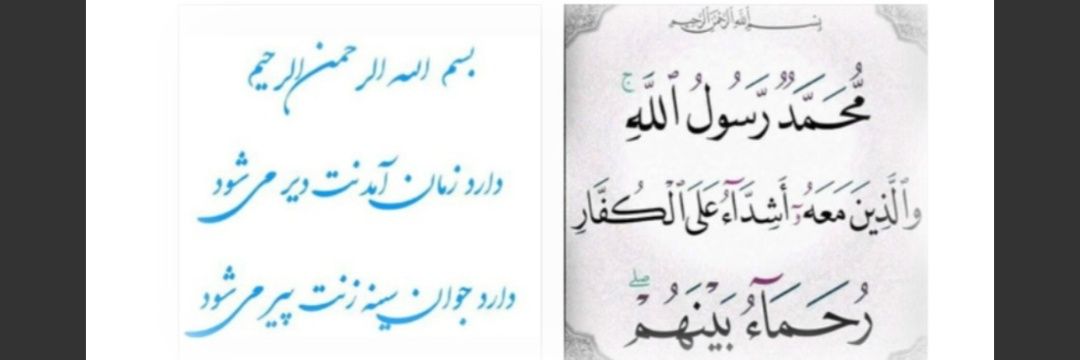 بسم الله الرحمن الرحیم
دارد زمان آمدنت دیر می‌شود
دارد جوان سینه زنت پیر می‌شود
بسم الله الرحمن الرحيم
مُّحَمَّدٌ رَّسُولُ ٱللَّهِ ۚ
وَٱلَّذِينَ مَعَهُۥٓ أَشِدَّآءُ عَلَى ٱلْكُفَّارِ
رُحَمَآءُ بَيْنَهُمْ ۖ